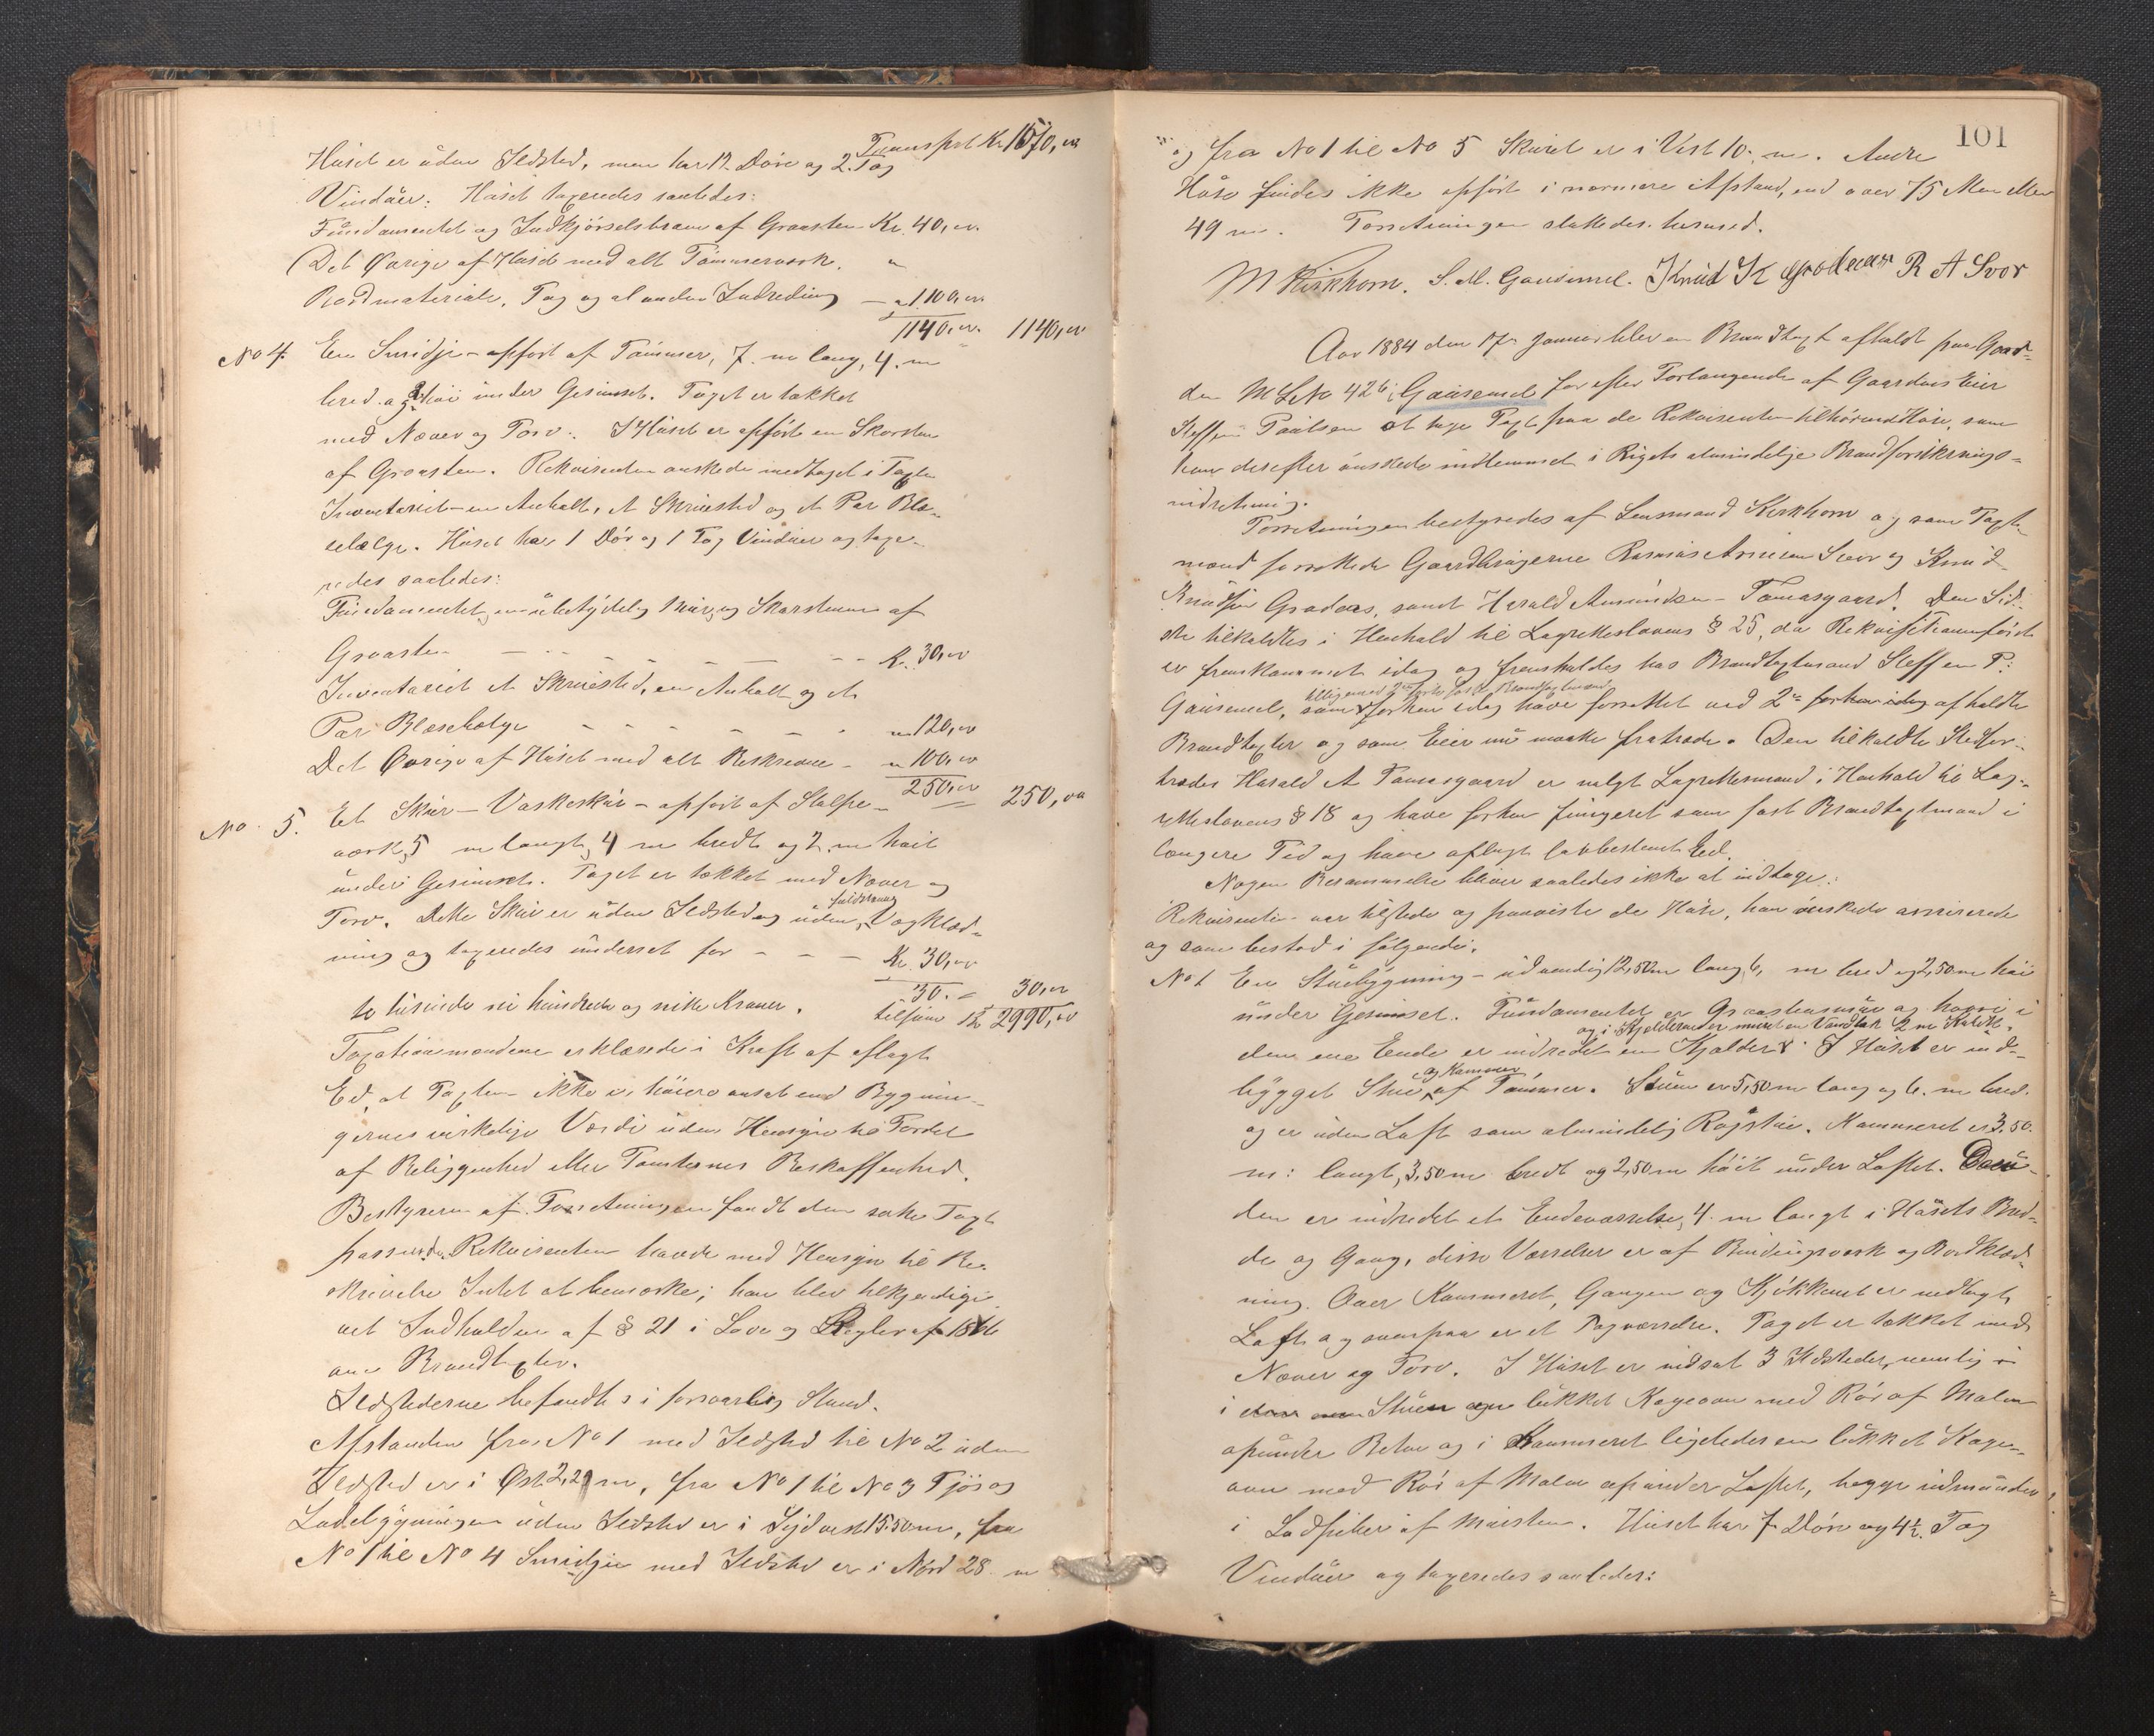 Transport Kr. 1570,00
Huset er uden Ildsted, men har 12 Døre og 2. Fag
Vinduer. Huset taxeredes saaledes:
Fundamentet og Indkjørselsbroen af Graasten Kr. 40,00.
Det Øvrige af Huset med alt Tømmerværk, "
Bordmateriale, Tag og al anden Indredning — " 1100,00
1140,00. 1140,00
No 4. En Smidje - opført af Tømmer, 7. m lang, 4. m
bred og 2 m høi under Gesimset. Taget er tækket
med Næver og Torv. I Huset er opført en Skorsten
af Graasten. Rekvirenten ønskede medtaget i Taxten
Inventariet - en Ambolt, et Skruested og et Par Blæ-
sebælge. Huset har 1 Dør og 1 Fag Vinduer og taxe-
redes saaledes:
Fundamentet, en ubetydelig Mur, og Skorstenen af
Graasten — — — — — — K. 30,00
Inventariet et Skruested, en Ambolt og et
Par Blæsebælge — — — — — " 120,00
Det Øvrige af Huset med alt Beskrevne — " 100,00
250,00 250,00
No. 5. Et Skur - Vaskeskur - opført af Stolpe-
værk, 5 m langt, 4 m bredt og 2 m høit
under Gesimset. Taget er tækket med Næver og
fuldstændig
Torv. Dette Skur er uden Ildsted og uden Vægklæd-
ning og taxeredes underset for — — — Kr. 30,00
30. = 30,00
to tusinde ni hundrede og nitti Kroner. tilsam Kr 2990,00
Taxationsmændene erklærede i Kraft af aflagt
Ed, at Taxten ikke er høiere ansat end Bygnin-
gernes virkelige Værdi uden Hensyn til Fordel
af Beliggenhed eller Tomternes Beskaffenhed.
Bestyreren af Forretningen fandt den satte Taxt
passende. Rekvirenten havde med Hensyn til Be-
skrivelse Intet at bemærke; han blev tilkjendegi-
vet Indholdet af § 21 i Lov og Regler af 1846
om Brandtaxter.
Ildstederne befandtes i forsvarlig Stand.
Afstanden fra No 1 med Ildsted til No 2 uden
Ildsted er i Øst 2,29 m, fra No 1 til No 3 Fjøs og
Ladebygningen uden Ildsted er i Sydvest 15.50 m, fra
No 1 til No 4 Smidjen med Ildsted er i Nord 28. m
101
og fra No 1 til No 5 Skuret er i Vest 10. m. Andre
Huse findes ikke opført i nærmere Afstand, end over 75 Alen eller
49 m. Forretningen sluttedes hermed.
M Kirkhorn. S. M. Gausemel. Knud K Grodaas R A Svor
Aar 1884 den 17de Januar blev en Brandtaxt afholdt paa Gaar-
den M L No 426, Gausemel for efter Forlangende af Gaardens Eier
Steffen Paulsen at tage Taxt paa de Rekvirenten tilhørende Huse, som
han derefter ønskede indlemmet i Rigets almindelige Brandforsikrings-
indretning.
Forretningen bestyredes af Lensmand Kirkhorn og som Taxt-
mænd forrettede Gaardbrugerne Rasmus Arnesen Svor og Knud
Knudsen Grodaas, samt Harald Amundsen Tomasgaard. Den Sid-
ste tilkaldtes i Henhold til Lagrettelovens § 25, da Rekvisitionen først
er fremkommet idag og fremholdes hos Brandtaxtmand Steffen P.
Gausemel, som forhen idag have forrettet ved 2de forhen idag afholdte
Brandtaxter og som Eier nu maatte fratræde. Den tilkaldte Stedfor-
træder Harald A Tomasgaard er valgt Lagrettesmand i Henhold til Lag-
rettelovens § 18 og have forhen fungeret som fast Brandtaxtmand i
længere Tid og have aflagt lovbestemt Ed.
Nogen Berammelse bliver saaledes ikke at indtage.
Rekvirenten var tilstede og paaviste de Huse, han ønskede assurerede
og som bestod i følgende.
No 1 En Stuebygning - udvendig 12,50 m lang, 6, m bred og 2,50 m høi
under Gesimset. Fundamentet er Graastensmur og hvori i
og i Kjelderen er muret en 2 m
den ene Ende er indredet en Kjelder. I Huset er ind-
og Kammer
bygget Stue af Tømmer. Stuen er 5,50 m lang og 6. m bred.
og er uden Loft som almindelig Røgstue. Kammeret er 3.50.
m: langt, 3,50 m bredt og 2,50 m høit under Loftet. Desu-
den er indredet et Endeværrelse, 4. m langt i Husets Bred-
de og Gang, disse Værrelser er af Bindingsværk og Bordklæd-
ning. Over Kammeret, Gangen og Kjøkkenet er indlagt
Loft og ovenpaa er et Tagværrelse. Taget er tækket med
Næver og Torv. I Huset er indsat 3 Ildsteder, nemlig
i Stuen en lukket Kogeovn med Rør af Malm
opunder og i Kammeret ligeledes en lukket Koge-
ovn med Rør af Malm opunder Loftet, begge indmunder
i Ladpiber af Mursten. Huset har 7 Døre og 4½. Fag
Vinduer og taxeredes saaledes: